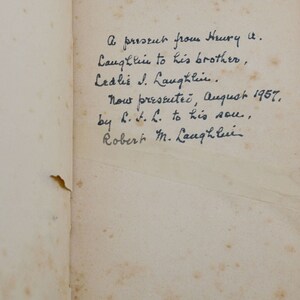 A present from Henry A.
Laughlin to his brother,
Ledlie I. Laughlin.
Now presented, August 1957,
by L. I. L. to his son,
Robert M. Laughlin